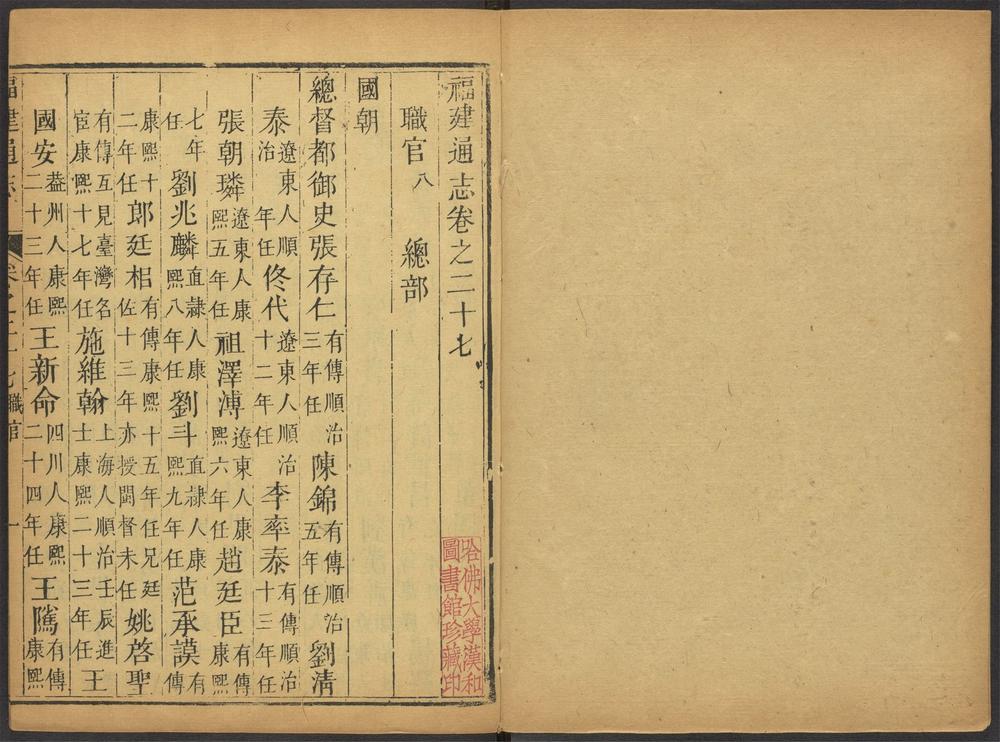 福建通志卷之二十七
職官八 總部
國朝
總督都御史張存仁有傳順治三年任陳錦有傳順治五年任劉清
泰遼東人順治年任佟代遼東人順治十二年任李率泰有傳順治十三年任
張朝璘遼東人康熙五年任祖澤溥遼東人康熙六年任趙廷臣有傳康熙
七年任劉兆麟直隸人康熙八年任劉斗直隸人康熙九年任范承謨有傳
康熙十二年任郎廷相有傳康熙十五年任兄廷佐十三年亦授閩督未任姚啓聖
有傳互見臺灣名宦康熙十七年任施維翰上海人順治壬辰進士康熙二十三年任王
國安葢州人康熙二十三年任王新命四川人康熙二十四年任王隲有傳康熙
福建通志 卷之二十七 職官 一
哈佛大學漢和
圖書館珍藏印